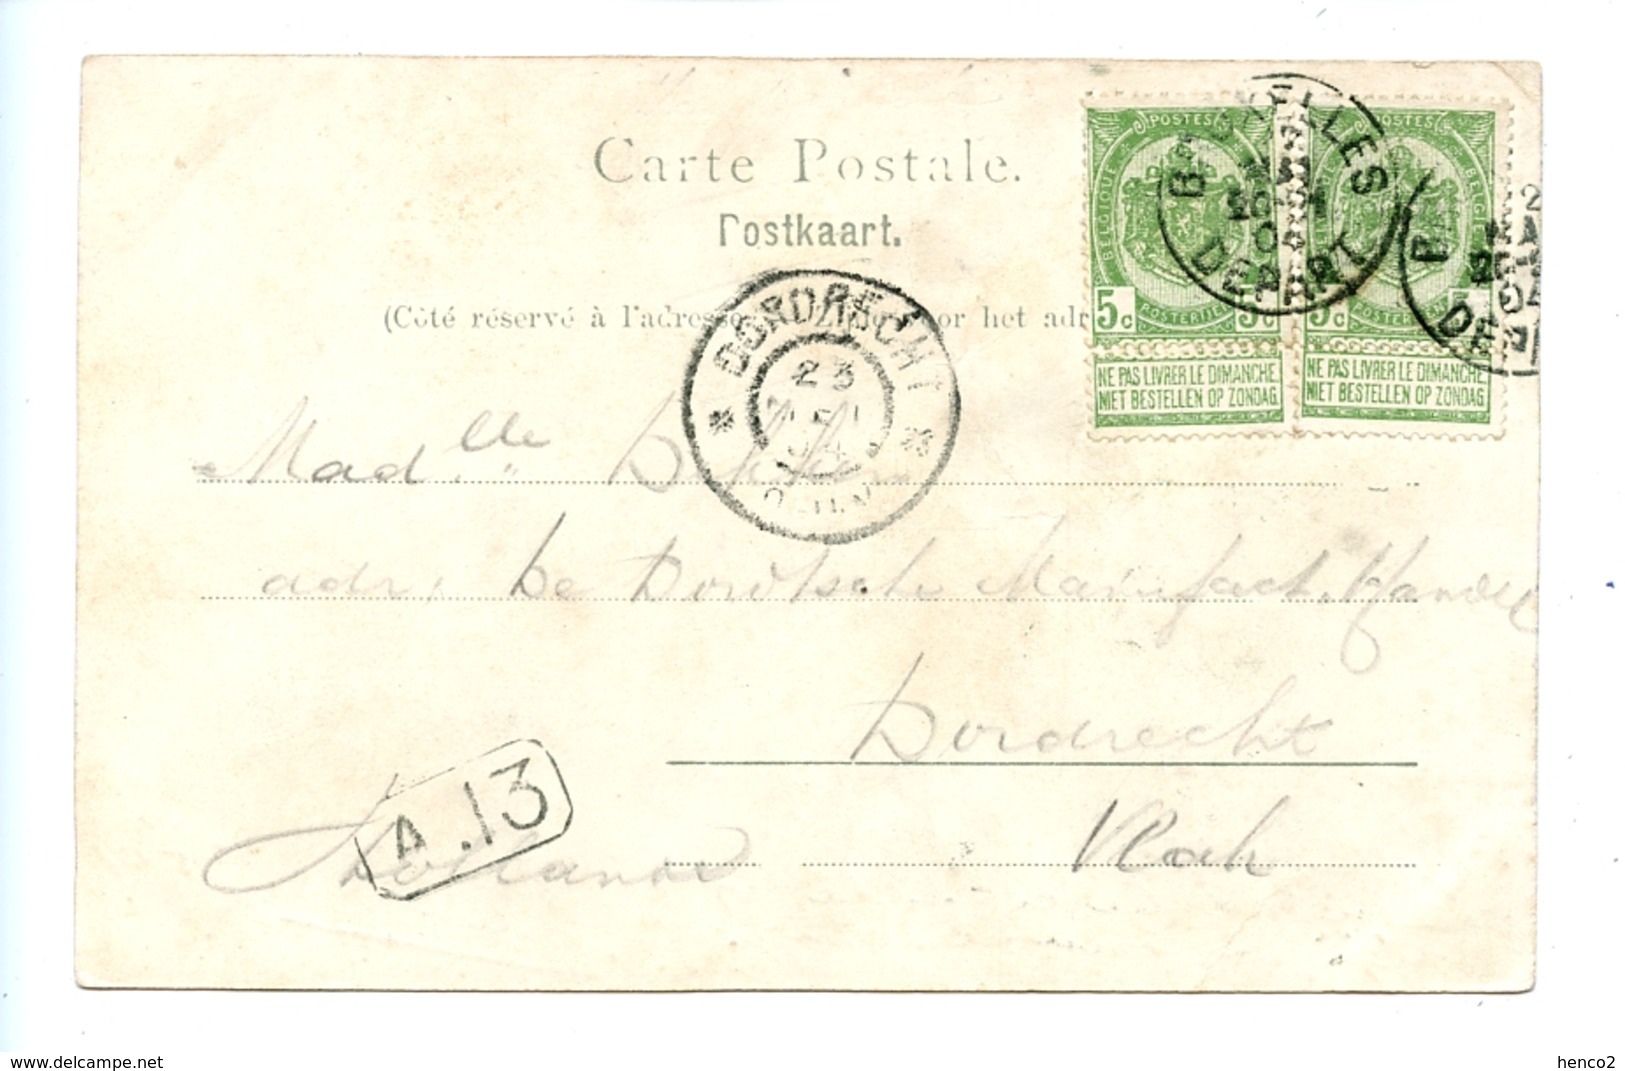 Carte Postale.
Postkaart.
(Côté réservé à l'adresse
oor het adr
POSTES
BELGIQUE
BELGIË
5c 5c
POSTERIJEN
NE PAS LIVRER LE DIMANCHE
NIET BESTELLEN OP ZONDAG.
POSTES
BELGIË
5c
POSTERIJEN
NE PAS LIVRER LE DIMANCHE
NIET BESTELLEN OP ZONDAG.
BRUXELLES
DEPART
DORDRECHT
23
Madlle
adr. De Dordtsche Manufact. Handel
Dordrecht
Hollande
A.13
www.delcampe.net
henco2